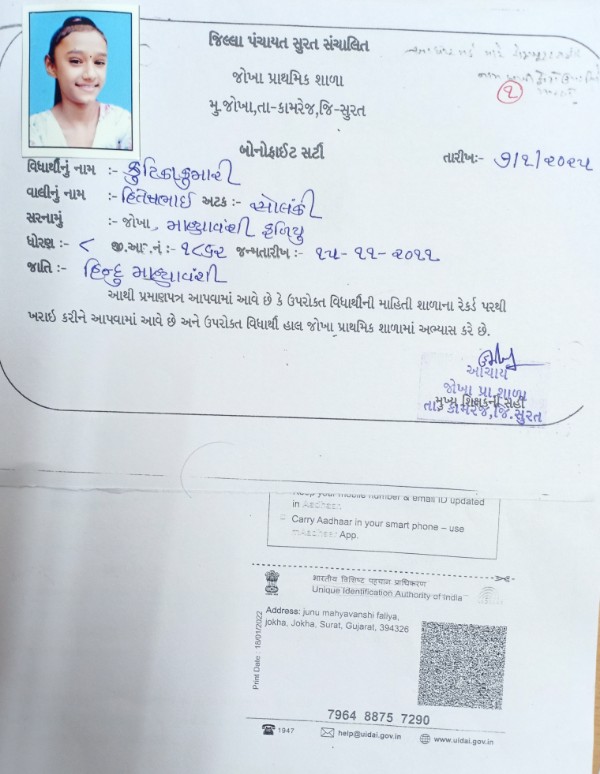 જિલ્લા પંચાયત સુરત સંચાલિત
જોખા પ્રાથમિક શાળા
મુ.જોખા,તા-કામરેજ,જિ-સુરત
૧
બોનોફાઈટ સર્ટી
તારીખ:- ૭/૨/૨૦૨૫
વિદ્યાર્થીનું નામ :-
વાલીનું નામ :- હિતેશભાઈ અટક :- સોલંકી
સરનામું :- જોખા, માહ્યાવંશી ફળિયુ
ધોરણ :- ૮ જી.આર.નં :- જન્મતારીખ :- ૧૫-૧૧-૨૦૧૧
જાતિ :- હિન્દુ માહ્યાવંશી
આથી પ્રમાણપત્ર આપવામાં આવે છે કે ઉપરોક્ત વિદ્યાર્થીની માહિતી શાળાના રેકર્ડ પરથી
ખરાઇ કરીને આપવામાં આવે છે અને ઉપરોક્ત વિદ્યાર્થી હાલ જોખા પ્રાથમિક શાળામાં અભ્યાસ કરે છે.
આચાર્ય
જોખા પ્રા.શાળા
મુખ્ય શિક્ષકની સહી
તા. કામરેજ,જિ.સુરત
Keep your mobile number & email ID updated
in Aadhaar
Carry Aadhaar in your smart phone – use
mAadhaar App.
भारतीय विशिष्ट पहचान प्राधिकरण
Unique Identification Authority of India
Address: junu mahyavanshi faliya,
jokha, Jokha, Surat, Gujarat, 394326
Print Date : 18/01/2022
7964 8875 7290
1947 help@uidai.gov.in www.uidai.gov.in